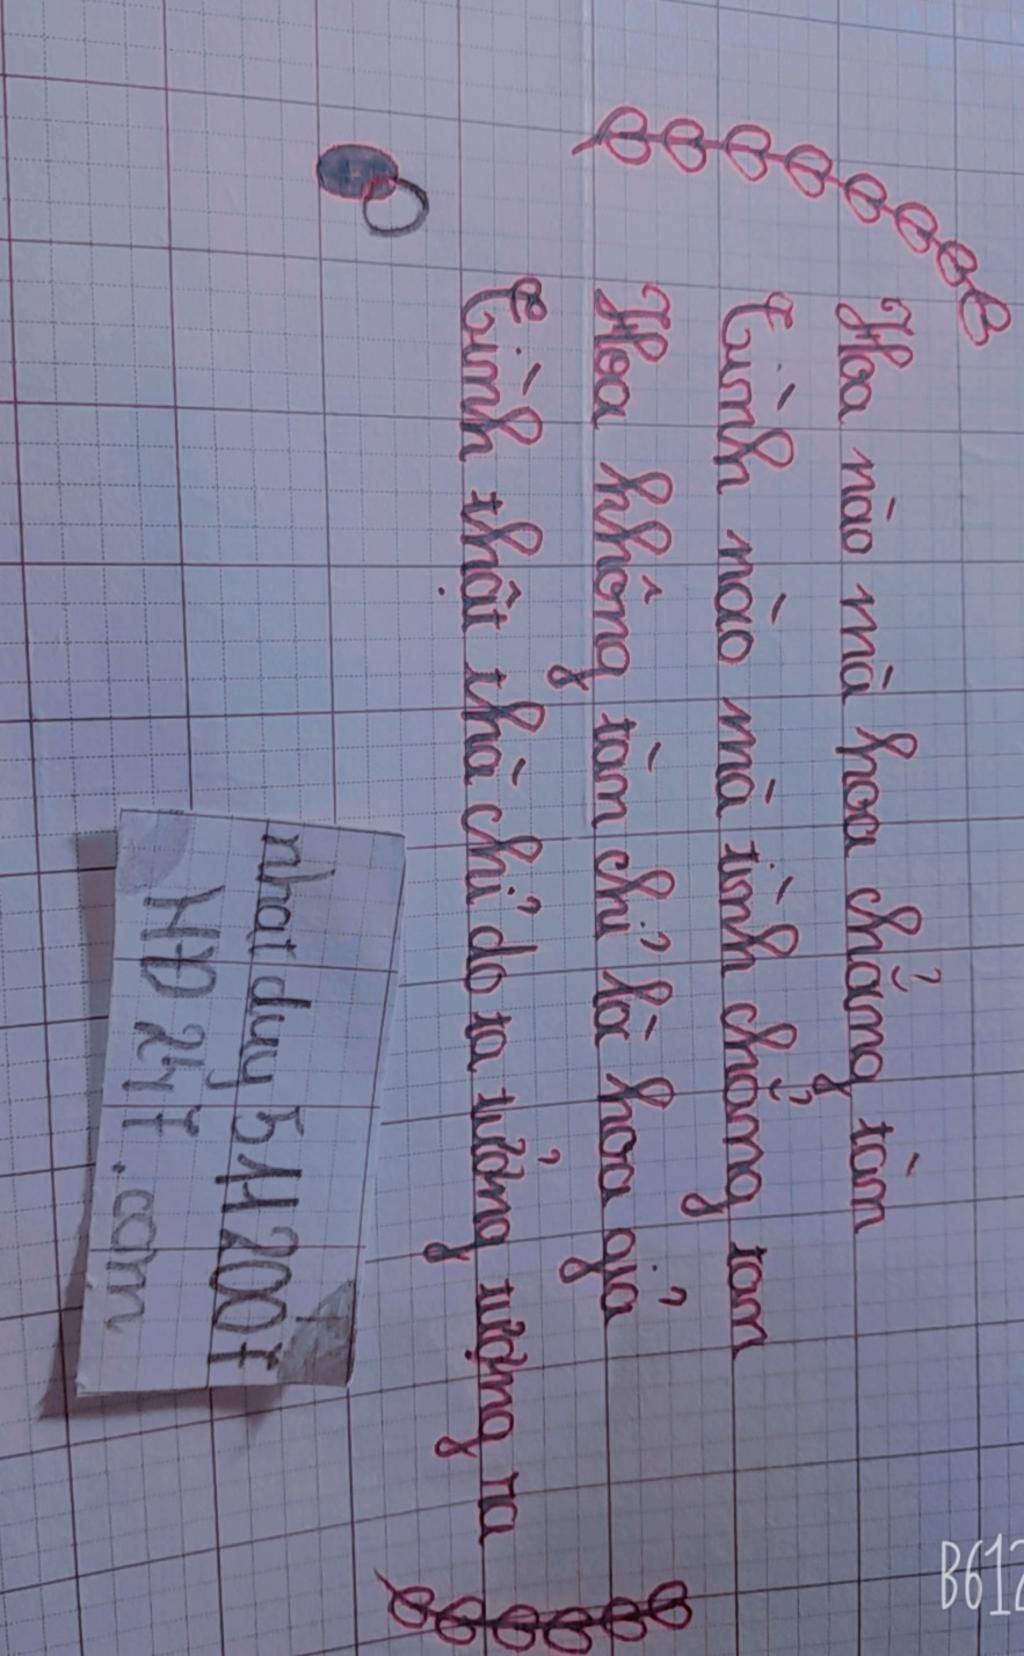 Hoa nào mà hoa chẳng tàn
Tình nào mà tình chẳng tan
Hoa không tàn chỉ là hoa giả
Tình thật thà chỉ do ta tưởng tượng ra
nhat duy 511200f
HĐ 247.com
B612